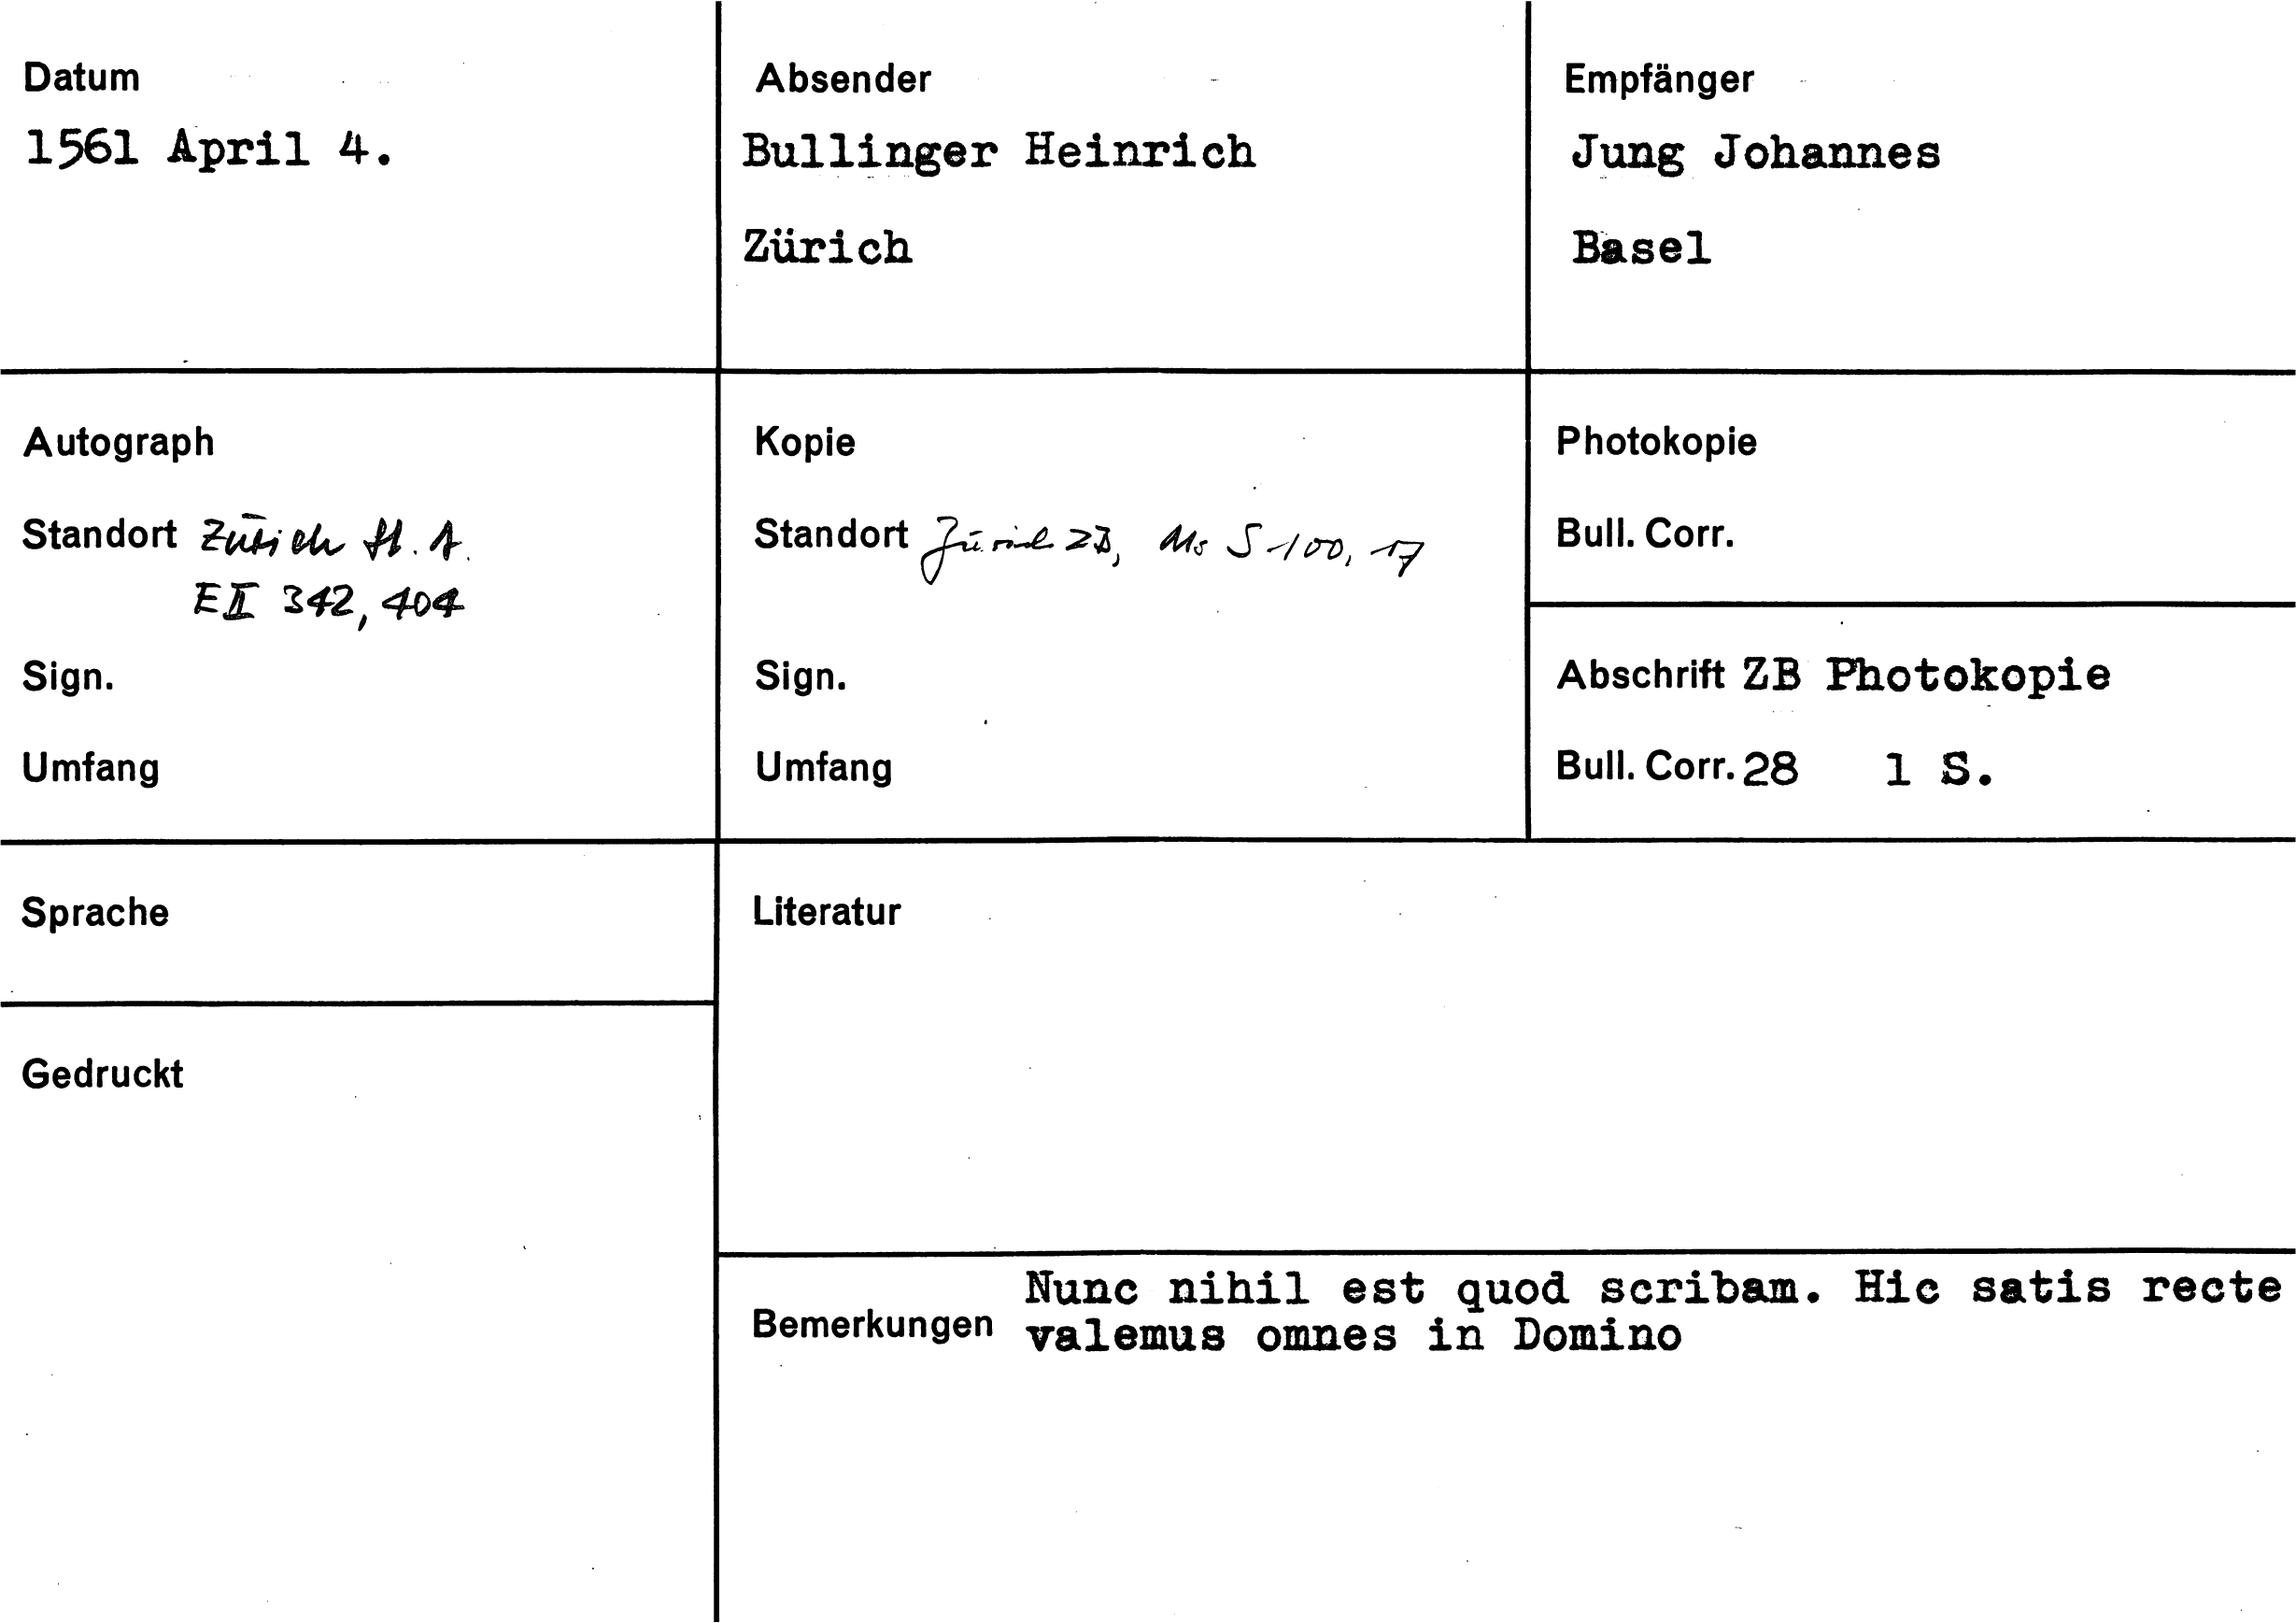 Datum
1561 April 4.
Absender
Bullinger Heinrich
Zürich
Empfänger
Jung Johannes
Basel
Autograph
Standort Zürich St. A.
E II 342, 404
Sign.
Umfang
Kopie
Standort Zürich ZB, Ms S 100, 17
Sign.
Umfang
Photokopie
Bull. Corr.
Abschrift ZB Photokopie
Bull. Corr. 28 1 S.
Sprache
Gedruckt
Literatur
Bemerkungen
Nunc nihil est quod scribam. Hic satis recte
valemus omnes in Domino